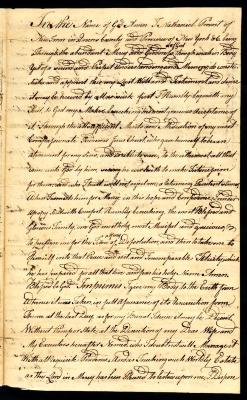 In the Name of God Amen I Nathanael
Town in County and Province of New York &c being
Through the abundant Mercy and Goodness of God
of a Sound and Perfect Understanding and Memory do
and appoint this my Last Will and Testament and desire
it may be received by All as such first I Humbly
my Soul to God my Maker beseeching his most gracious acceptance of
it Through the all Merits and Mediation of my most
Compassionate Redeemer Jesus Christ who gave himself to be an
atonement for my Sins, and is able to save to the uttermost all that
come unto God by him seeing he ever liveth to make Intercession
for them and who I trust will not reject me a returning Penitent Sinner
When I come to him for Mercy in this hope and Confidence I render
up my Soul with Comfort Humbly beseeching the most Blessed and
Glorious Trinity one God most holy most Merciful and gracious
to prepare me for the Time of my Dissolution and then to take me to
Himself into that Peace and rest and incomparable
he has prepared for all that love and fear his holy Name Amen
Blessed be God Imprimis I give my Body to the Earth from
whence it was taken in full assurance of its Resurrection from
Thence at the last Day as for my Burial I desire it may be Decent
Without Pomp or State at the Direction of my Dear Wife and
My Executors hereafter Named who I doubt not will Manage it
With all requisite Prudence And as Touching my Worldly Estate
as the Lord in Mercy has been Pleased to bestow upon me I Dispose